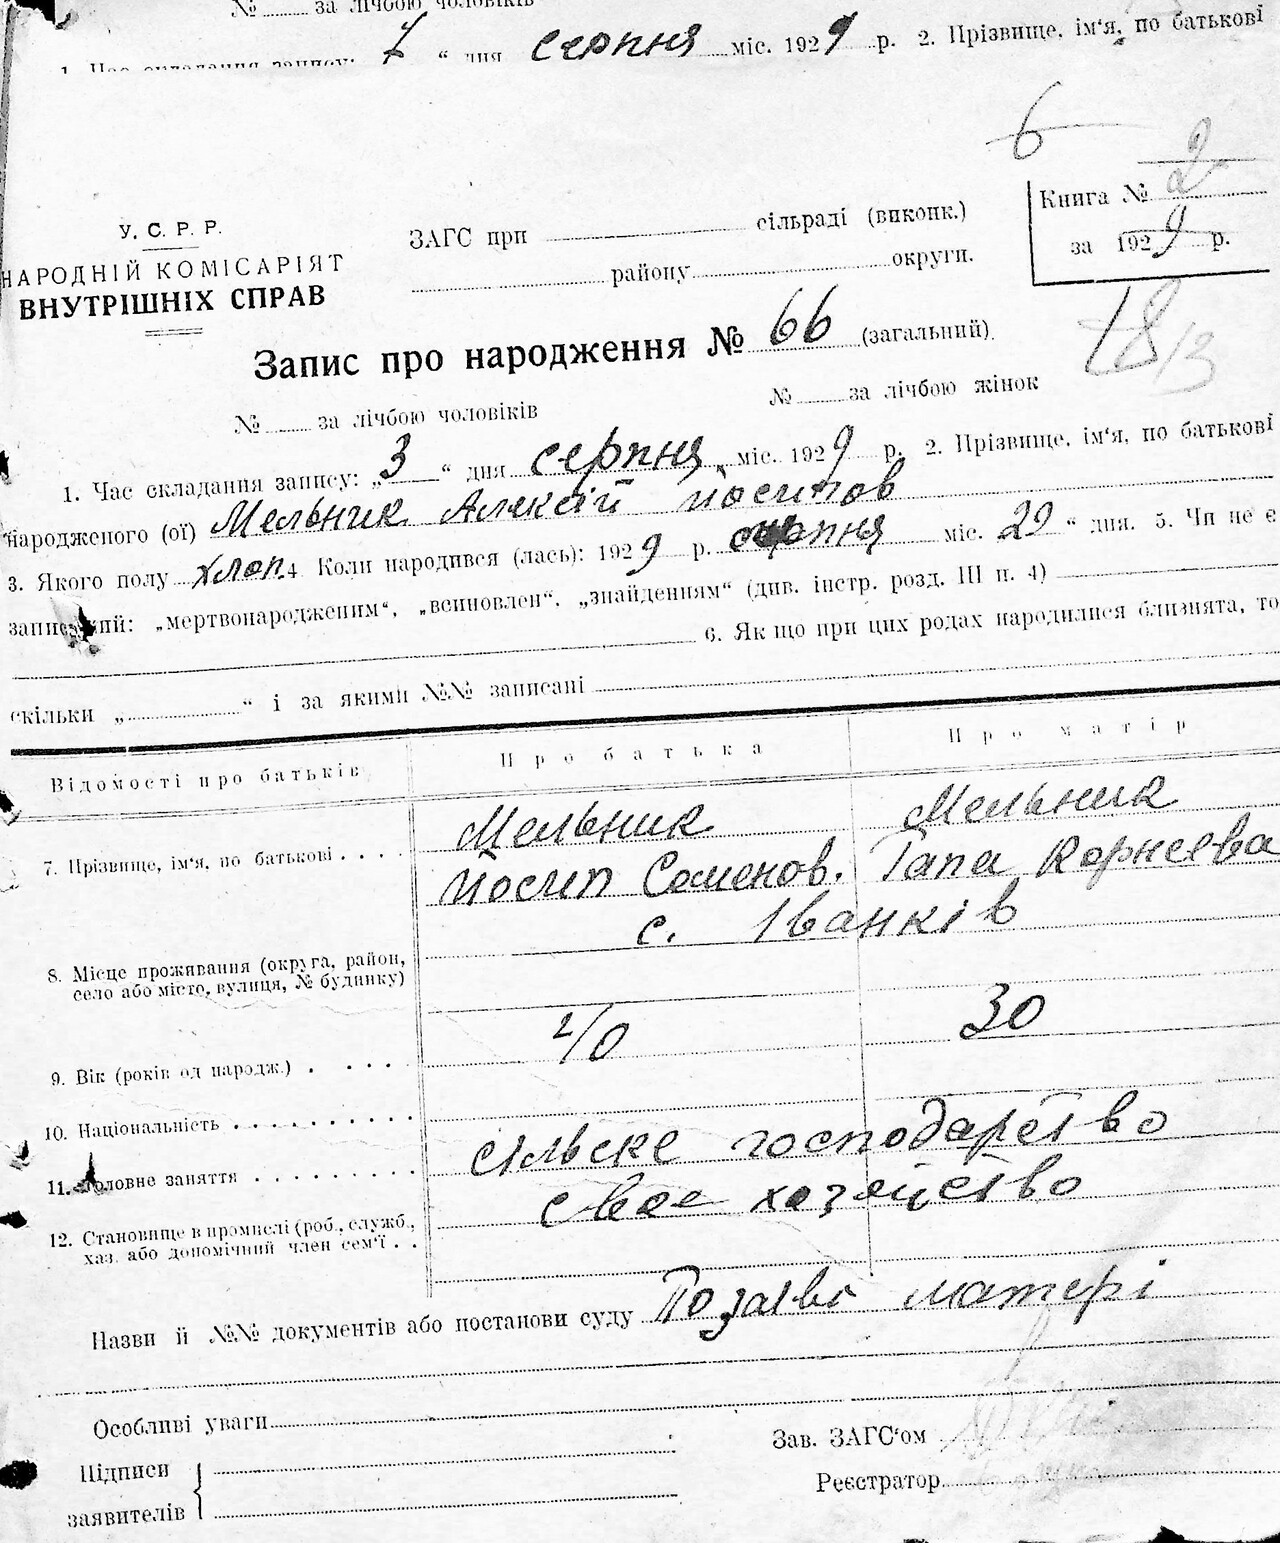 № за лічбою чоловіків
7 “ дня серпня міс. 1929 р. 2. Прізвище, ім‘я, по батькові
1. Час складання запису:
6
Книга № 2
за 1929 р.
У. С. Р. Р.
НАРОДНІЙ КОМІСАРІЯТ
ВНУТРІШНІХ СПРАВ
ЗАГС при сільраді (виконк.)
району округи.
Запис про народження № 66 (загальний)
№ за лічбою чоловіків № за лічбою жінок
1. Час складання запису: „3“ дня серпня міс. 1929 р. 2. Прізвище, ім‘я, по батькові
народженого (ої) Мельник Алексій Йосипов
3. Якого полу хлоп. 4 Коли народився (лась): 1929 р. серпня міс. 29 “ дня. 5. Чи не є
записаний: „мертвонародженим“, „всиновлен“, „знайденням“ (див. інстр. розд. III п. 4)
6. Як що при цих родах народилися близнята, то
скільки „ “ і за якими №№ записані
Відомості про батьків Про батька Про матір
7. Прізвище, ім‘я, по батькові . . . . Мельник Мельник
Йосип Семенов. Гапа Корнеева
с. Іванків
8. Місце проживання (округа, район,
село або місто, вулиця, № будинку)
9. Вік (років од народж.) . . . . . 40 30
10. Національність . . . . . . . . . .
11. Головне заняття . . . . . . . . . сільске господарство
12. Становище в промислі (роб., служб., свое хозяйство
хаз. або допомічний член сем‘ї . .
Назви й №№ документів або постанови суду По заяві матері
Особливі уваги
Підписи
заявителів
Зав. ЗАГС‘ом
Реєстратор